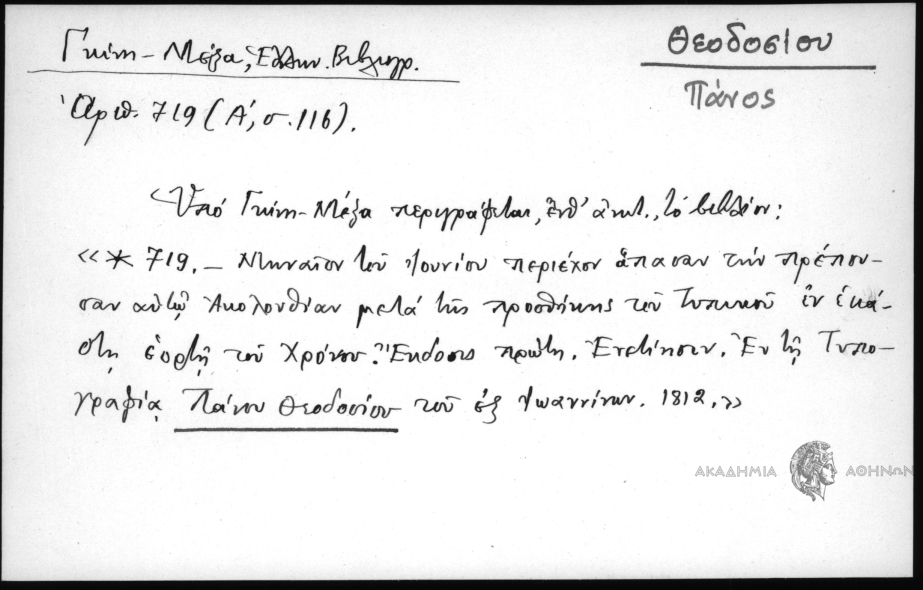 Γκίνη - Μέξα, Ἑλλην. Βιβλιογρ.
Θεοδοσίου
Πάνος
Ἀριθ. 719 (Α΄, σ. 116).
Ὑπό Γκίνη - Μέξα περιγράφεται, ἐνθ' ἀνωτ., τό βιβλίον:
«* 719. — Μηναῖον τοῦ Ἰουνίου περιέχον ἅπασαν τήν πρέπου-
σαν αὐτῷ Ἀκολουθίαν μετά τῆς προσθήκης τοῦ Τυπικοῦ ἐν ἑκά-
στῃ ἑορτῇ τοῦ Χρόνου. Ἔκδοσις πρώτη. Ἐνετίησιν. Ἐν τῇ Τυπο-
γραφίᾳ Πάνου Θεοδοσίου τοῦ ἐξ Ἰωαννίνων. 1812.»
ΑΚΑΔΗΜΙΑ ΑΘΗΝΩΝ